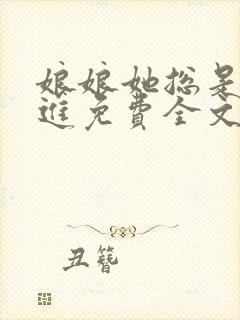 娘娘她总是
进免费全文
丑簪